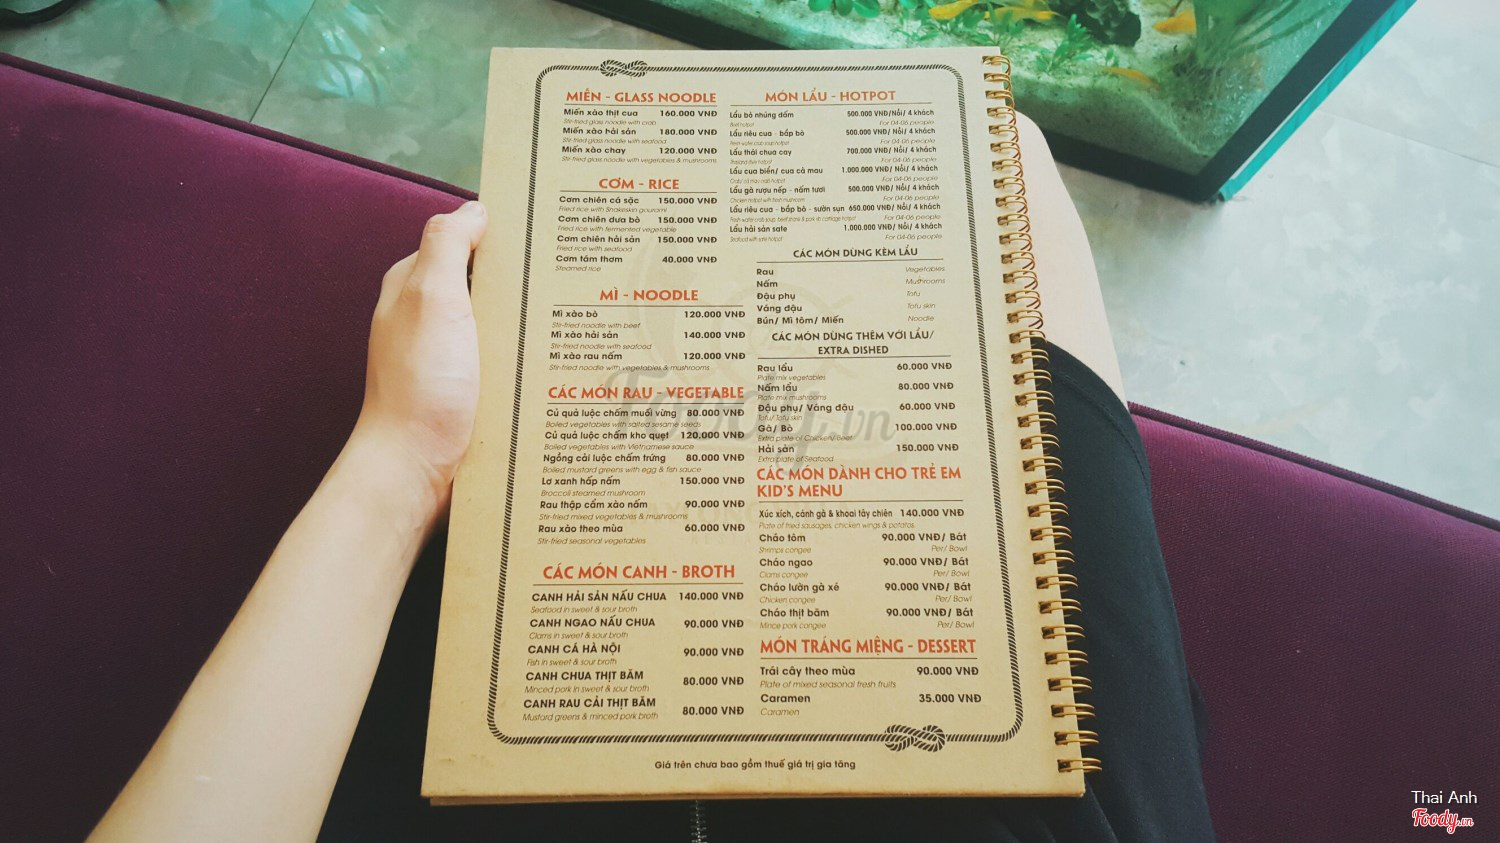 MIẾN - GLASS NOODLE
Miến xào thịt cua 160.000 VNĐ
Stir-fried glass noodle with crab
Miến xào hải sản 180.000 VNĐ
Stir-fried glass noodle with seafood
Miến xào chay 120.000 VNĐ
Stir-fried glass noodle with vegetables & mushrooms
CƠM - RICE
Cơm chiên cá sặc 150.000 VNĐ
Fried rice with Snakeskin gourami
Cơm chiên dưa bò 150.000 VNĐ
Fried rice with fermented vegetable
Cơm chiên hải sản 150.000 VNĐ
Fried rice with seafood
Cơm tám thơm 40.000 VNĐ
Steamed rice
MÌ - NOODLE
Mì xào bò 120.000 VNĐ
Stir-fried noodle with beef
Mì xào hải sản 140.000 VNĐ
Stir-fried noodle with seafood
Mì xào rau nấm 120.000 VNĐ
Stir-fried noodle with vegetables & mushrooms
CÁC MÓN RAU - VEGETABLE
Củ quả luộc chấm muối vừng 80.000 VNĐ
Boiled vegetables with salted sesame seeds
Củ quả luộc chấm kho quẹt 120.000 VNĐ
Boiled vegetables with Vietnamese sauce
Ngồng cải luộc chấm trứng 80.000 VNĐ
Boiled mustard greens with egg & fish sauce
Lơ xanh hấp nấm 150.000 VNĐ
Broccoli steamed mushroom
Rau thập cẩm xào nấm 90.000 VNĐ
Stir-fried mixed vegetables & mushrooms
Rau xào theo mùa 60.000 VNĐ
Stir-fried seasonal vegetables
CÁC MÓN CANH - BROTH
CANH HẢI SẢN NẤU CHUA 140.000 VNĐ
Seafood in sweet & sour broth
CANH NGAO NẤU CHUA 90.000 VNĐ
Clams in sweet & sour broth
CANH CÁ HÀ NỘI 90.000 VNĐ
Fish in sweet & sour broth
CANH CHUA THỊT BĂM 80.000 VNĐ
Minced pork in sweet & sour broth
CANH RAU CẢI THỊT BĂM 80.000 VNĐ
Mustard greens & minced pork broth
MÓN LẨU - HOTPOT
Lẩu bò nhúng dấm 500.000 VNĐ/Nồi/ 4 khách
Beef hotpot For 04-06 people
Lẩu riêu cua - bắp bò 500.000 VNĐ/Nồi/ 4 khách
For 04-06 people
Lẩu thái chua cay 700.000 VNĐ/ Nồi/ 4 khách
Thailand style hotpot For 04-06 people
Lẩu cua biển/ cua cà mau 1.000.000 VNĐ/ Nồi/ 4 khách
For 04-06 people
Lẩu gà rượu nếp - nấm tươi 500.000 VNĐ/ Nồi/ 4 khách
Chicken hotpot with fresh mushroom For 04-06 people
Lẩu riêu cua - bắp bò - sườn sụn 650.000 VNĐ/ Nồi/ 4 khách
For 04-06 people
Lẩu hải sản sate 1.000.000 VNĐ/ Nồi/ 4 khách
Seafood with sate hotpot For 04-06 people
CÁC MÓN DÙNG KÈM LẨU
Rau Vegetables
Nấm Muthrooms
Đậu phụ Tofu
Váng đậu Tofu skin
Bún/ Mì tôm/ Miến Noodle
CÁC MÓN DÙNG THÊM VỚI LẨU/
EXTRA DISHED
Rau lẩu 60.000 VNĐ
Plate mix vegetables
Nấm lẩu 80.000 VNĐ
Plate mix mushrooms
Đậu phụ/ Váng đậu 60.000 VNĐ
Tofu/Tofu skin
Gà/ Bò 100.000 VNĐ
Extra plate of Chicken/ Beef
Hải sản 150.000 VNĐ
Extra plate of Seafood
CÁC MÓN DÀNH CHO TRẺ EM
KID'S MENU
Xúc xích, cánh gà & khoai tây chiên 140.000 VNĐ
Plate of fried sausages, chicken wings & potatos
Cháo tôm 90.000 VNĐ/ Bát
Shrimps congee Per/ Bowl
Cháo ngao 90.000 VNĐ/ Bát
Clams congee Per/ Bowl
Cháo lườn gà xé 90.000 VNĐ/ Bát
Chicken congee Per/ Bowl
Cháo thịt băm 90.000 VNĐ/ Bát
Mince pork congee Per/ Bowl
MÓN TRÁNG MIỆNG - DESSERT
Trái cây theo mùa 90.000 VNĐ
Plate of mixed seasonal fresh fruits
Caramen 35.000 VNĐ
Caramen
Giá trên chưa bao gồm thuế giá trị gia tăng
Foody.vn
Thai Anh
Foody.vn